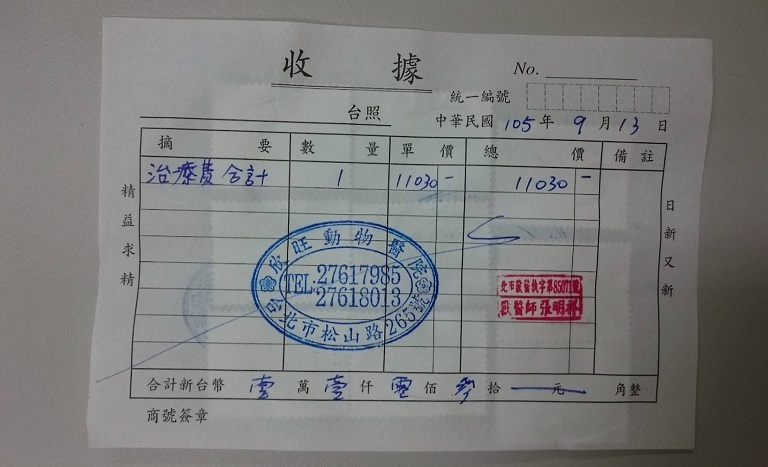 收據
No.
統一編號
台照
中華民國 105 年 9 月 13 日
摘要 數量 單價 總價 備註
治療費合計 1 11030- 11030-
精益求精
日新又新
欣旺動物醫院
TEL:27617985
27618013
台北市松山路265號
北市獸醫執字第
獸醫師張明
合計新台幣 壹 萬 壹 仟 零 佰 參 拾 — 元 角整
商號簽章